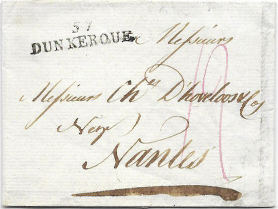 57
DUNKERQUE
Messieurs
Messieurs Chs D'hoveloos & Co
Negts
Nantes